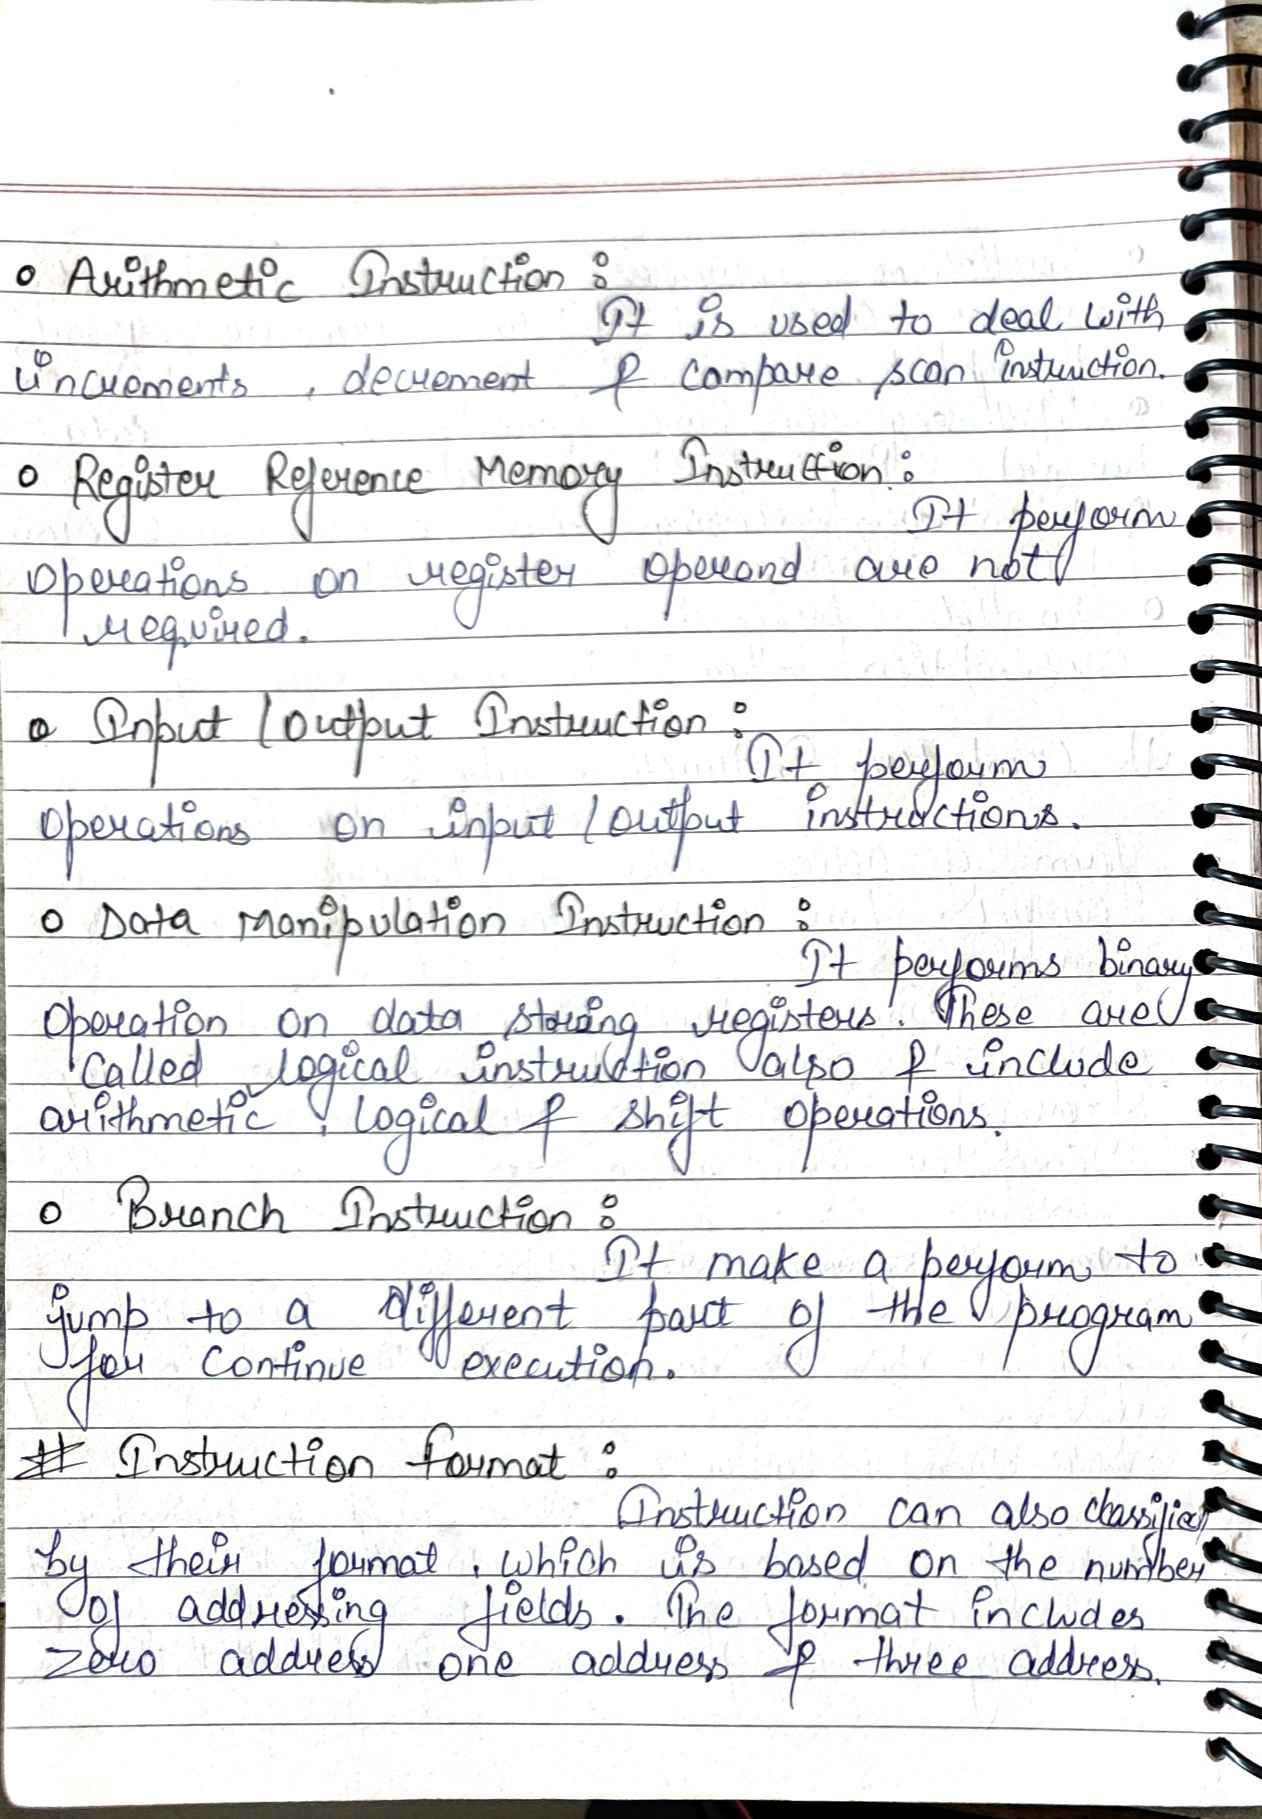 o Arithmetic Instruction :
It is used to deal with
increments, decrement & compare scan instruction.
o Register Reference Memory Instruction :
It perform
operations on register operand are not
required.
o Input / Output Instruction :
It perform
operations on input / output instructions.
o Data Manipulation Instruction :
It performs binary
operation on data storing registers. These are
called logical instruction also & include
arithmetic, logical & shift operations.
o Branch Instruction :
It make a perform to
jump to a different part of the program
for continue execution.
# Instruction format :
Instruction can also classified
by their format, which is based on the number
of addressing fields. The format includes
zero address one address & three address.